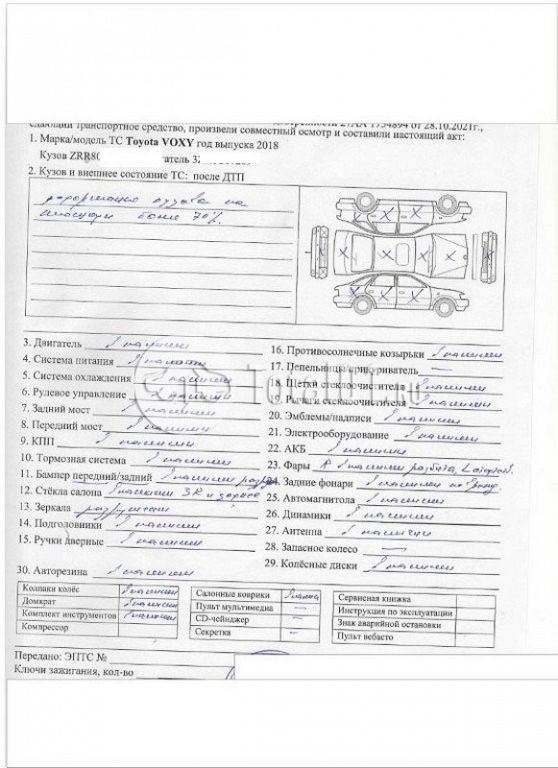 27АА 1754894 от 28.10.2021г.,
транспортное средство, произвели совместный осмотр и составили настоящий акт:
1. Марка/модель ТС Toyota VOXY год выпуска 2018
Кузов ZRR80
2. Кузов и внешнее состояние ТС: после ДТП
деформация кузова на
площади более 70%.
3. Двигатель в наличии
4. Система питания в наличии
5. Система охлаждения в наличии
6. Рулевое управление в наличии
7. Задний мост в наличии
8. Передний мост в наличии
9. КПП в наличии
10. Тормозная система в наличии
11. Бампер передний/задний в наличии
12. Стёкла салона в наличии
13. Зеркала разрушены
14. Подголовники в наличии
15. Ручки дверные в наличии
16. Противосолнечные козырьки в наличии
17. Пепельницы/прикуриватель —
18. Щетки стеклоочистителя в наличии
19. Рычаги стеклоочистителя в наличии
20. Эмблемы/надписи в наличии
21. Электрооборудование в наличии
22. АКБ в наличии
23. Фары R в наличии разбита,
24. Задние фонари в наличии
25. Автомагнитола в наличии
26. Динамики в наличии
27. Антенна в наличии
28. Запасное колесо —
29. Колёсные диски в наличии
30. Авторезина в наличии
Колпаки колёс в наличии
Домкрат в наличии
Комплект инструментов в наличии
Компрессор
Салонные коврики
Пульт мультимедиа —
CD-чейнджер —
Секретка —
Сервисная книжка
Инструкция по эксплуатации
Знак аварийной остановки
Пульт вебасто
Передано: ЭПТС №
Ключи зажигания, кол-во